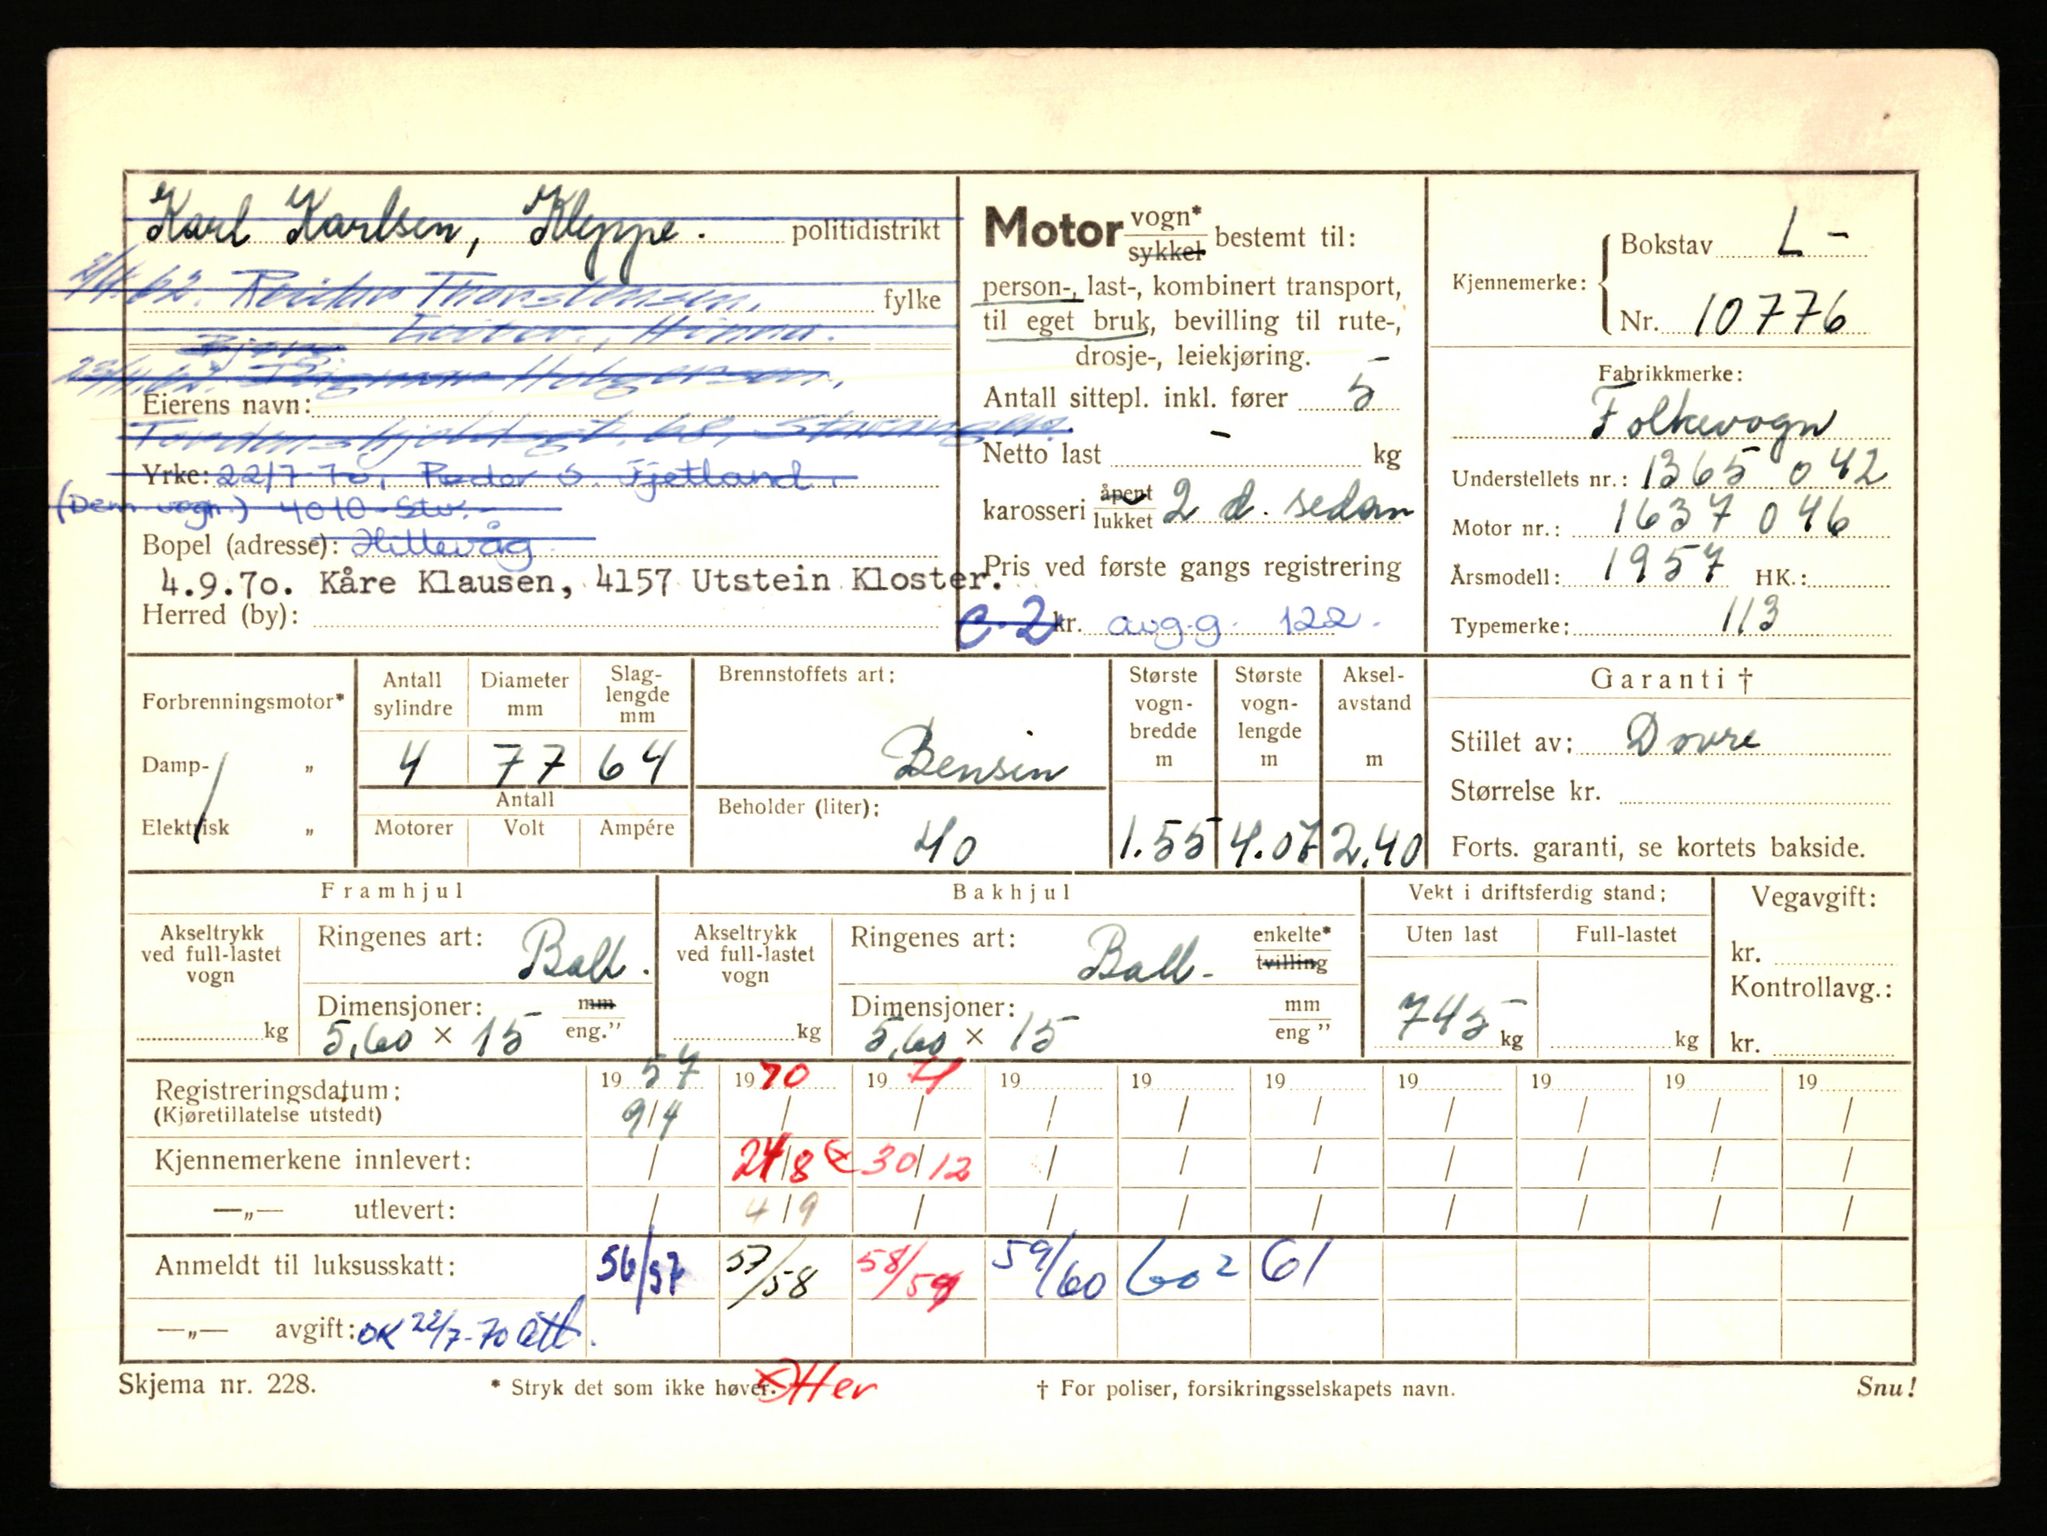 Karl Karlsen, Kleppe. politidistrikt
2/4.62. Reidar Thorstensen, fylke
Hinna.
Bjarne
Holgersen,
Eierens navn:
Tordenskjoldsgt. 68, Stavanger.
Yrke: 22/7 70, Peder O. Fjetland.
(Dem. vogn.) 4010 Stv.
Bopel (adresse): Hillevåg
4.9.70. Kåre Klausen, 4157 Utstein Kloster.
Herred (by):
Motor vogn* sykkel bestemt til:
person-, last-, kombinert transport,
til eget bruk, bevilling til rute-,
drosje-, leiekjøring.
Antall sittepl. inkl. fører 5
Netto last - kg
karosseri åpent lukket 2 d. sedan
Pris ved første gangs registrering
c.2 kr. avg.g. 122.
Kjennemerke: Bokstav L-
Nr. 10776
Fabrikkmerke:
Folkevogn
Understellets nr.: 1365 042
Motor nr.: 1637 046
Årsmodell: 1957 HK.:
Typemerke: 113
Forbrenningsmotor*
Damp- „
Elektrisk „
Antall sylindre
4
Diameter mm
77
Slag-lengde mm
64
Antall
Motorer Volt Ampére
Brennstoffets art:
Bensin
Beholder (liter):
40
Største vogn-bredde m
1.55
Største vogn-lengde m
4.07
Aksel-avstand m
2.40
Garanti †
Stillet av: Dovre
Størrelse kr.
Forts. garanti, se kortets bakside.
Framhjul
Akseltrykk ved full-lastet vogn
kg
Ringenes art: Ball.
Dimensjoner: mm eng."
5,60 × 15
Bakhjul
Akseltrykk ved full-lastet vogn
kg
Ringenes art: Ball- enkelte* tvilling
Dimensjoner: mm eng "
5,60 × 15
Vekt i driftsferdig stand:
Uten last Full-lastet
745 kg kg
Vegavgift:
kr.
Kontrollavg.:
kr.
Registreringsdatum: 19 57 19 70 19 71 19 19 19 19 19 19 19
(Kjøretillatelse utstedt) 9/4 / / / / / / / / /
Kjennemerkene innlevert: / 24/8 30/12 / / / / / / /
—„— utlevert: / 4/9 / / / / / / / /
Anmeldt til luksusskatt: 56/57 57/58 58/59 59/60 60² 61
—„— avgift: OK 22/7-70
Skjema nr. 228. * Stryk det som ikke høver. Her † For poliser, forsikringsselskapets navn. Snu!